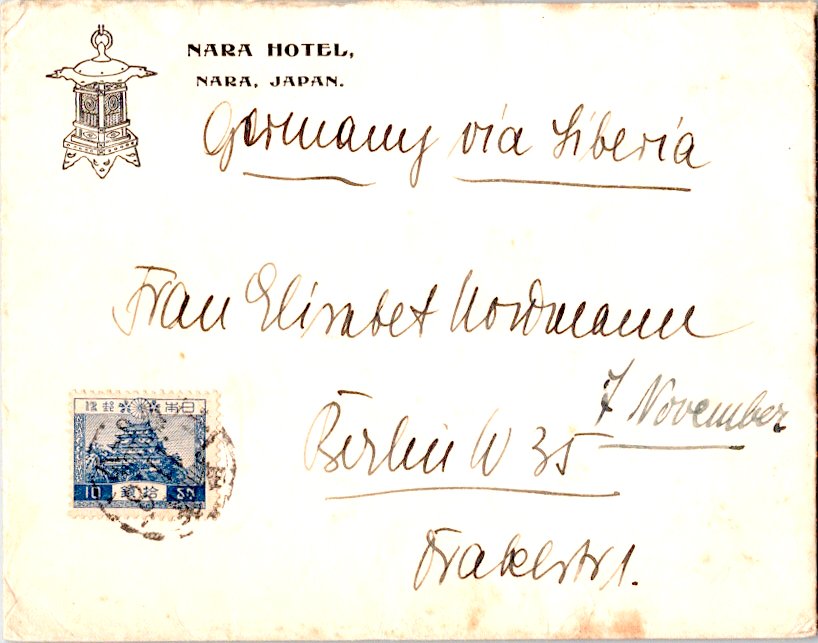 NARA HOTEL,
NARA, JAPAN.
Germany via Siberia
Frau Elisabet Nordmann
7 November
Berlin W 35
Drakestr 1.
便郵 本日
10 錢拾 SN